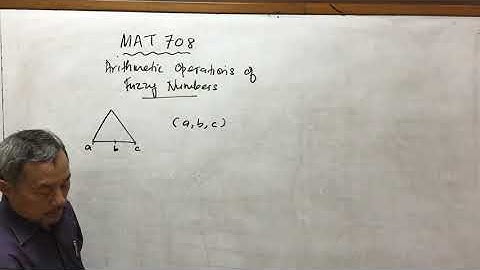 MAT 708
Arithmetic Operations of
Fuzzy Numbers
(a, b, c)
a b c